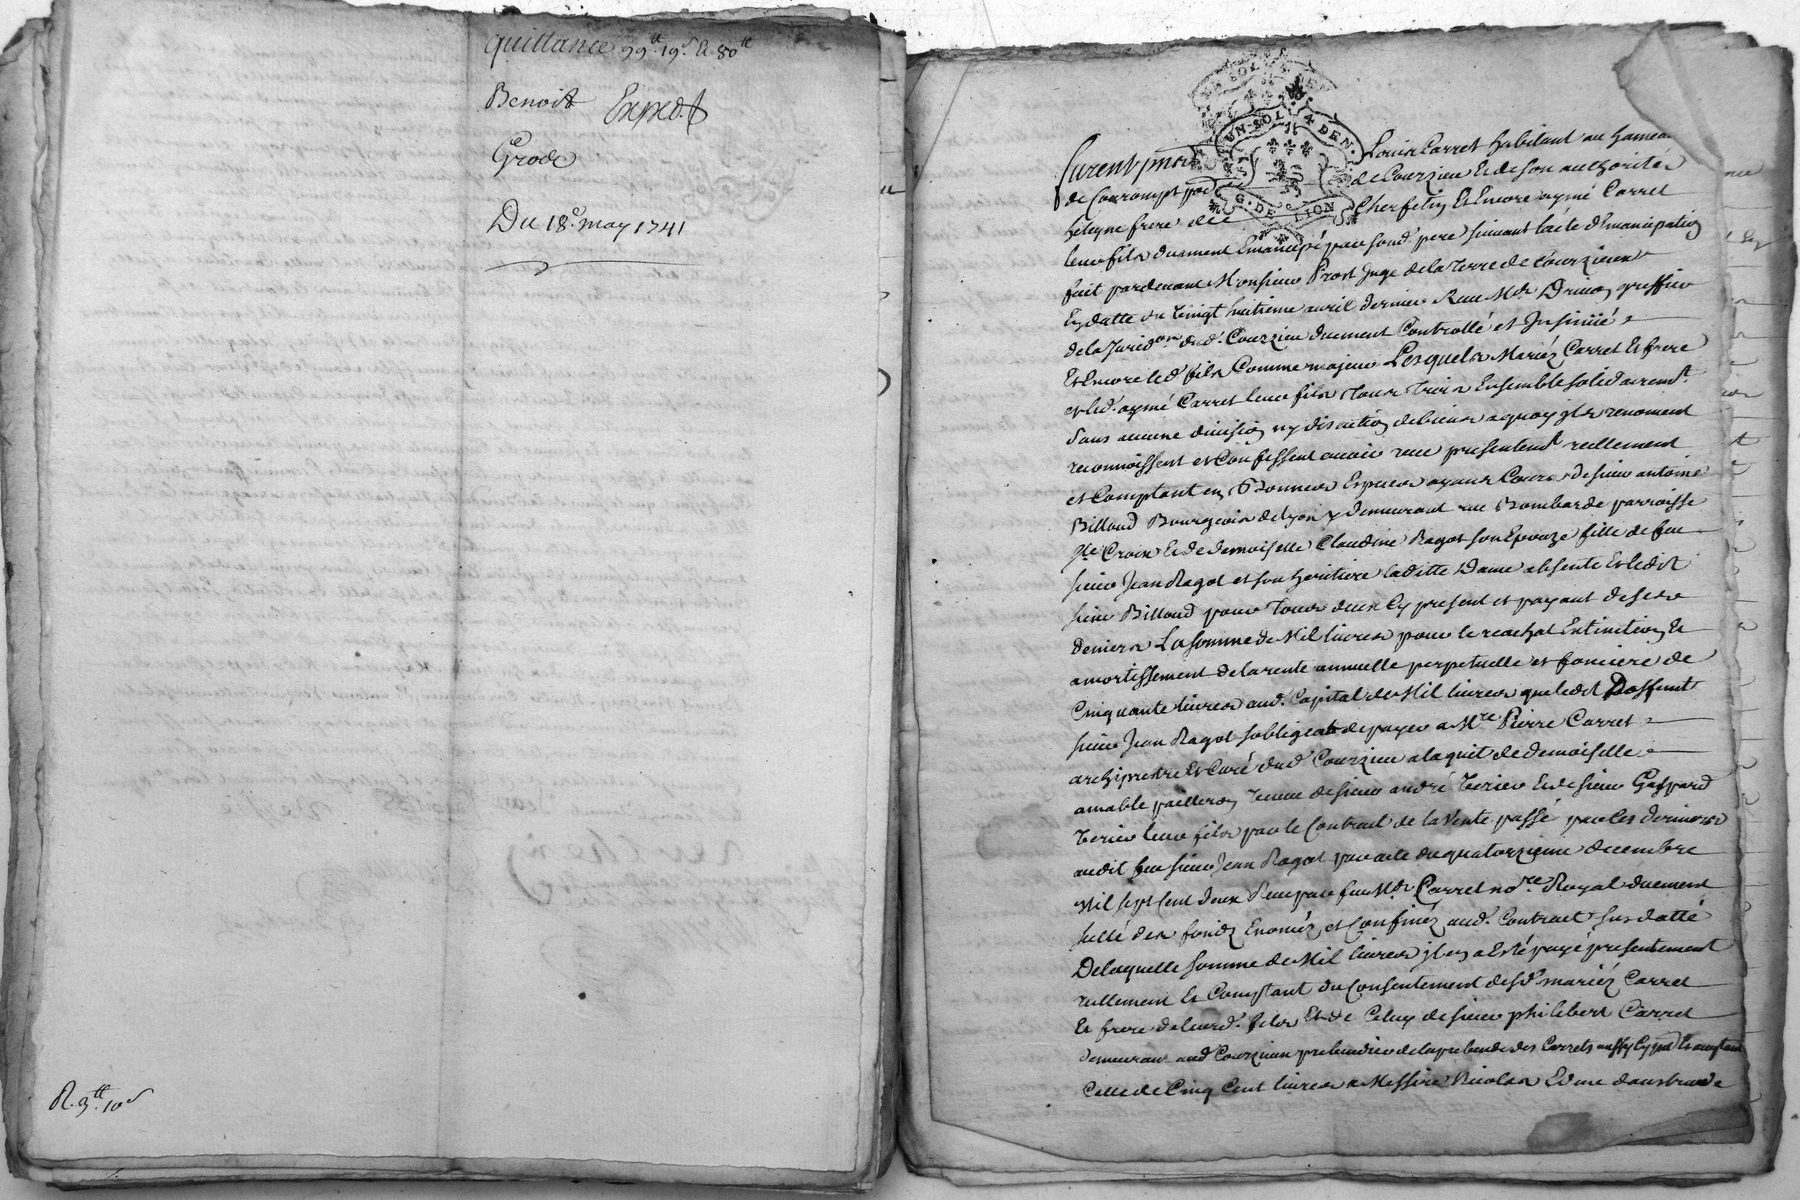 quittance 99ᵗᵗ 19ˢ & 80ᵗᵗ
Benoist Exped.
Grode
Du 18.ᵉ may 1741
R. 3ᵗᵗ 10ˢ
UN SOL 4 DEN.
G. DE LION
furent pnts Louis Carret habitant au hameau
de Courompt de Courzieu Et de son authorité
heleyne frere Et Encore aymé Carret
leur fils duement Emancipé par sond. pere suivant l'acte d'Emancipation
fait pardevant Monsieur Prost Juge de la terre de Courzieu
En datte du vingt huitieme avril dernier Receu Mᵉ greffier
de la Jurid.ᵒⁿ dud. Courzieu duement Controllé et Insinüé
Et Encore led. fils Comme majeur Lesquels Mariéz Carret Et frere
et led. aymé Carret leur fils tous trois Ensemble solidairemᵗ.
sans aucune division ny discution de biens a quoy ils renoncent
reconnoissent et Confessent avoir receu presentemᵗ reellement
et Comptant en Bonnes Especes ayant Cours de sieur antoine
Billoud Bourgeois de Lyon y demeurant rue Bombarde parroisse
Ste Croix Et de demoiselle Claudine Ragot son Epouze fille de feu
sieur Jean Ragot et son heritiere laditte Dame absente Et ledit
sieur Billoud pour tous deux Cy present et payant de ses
deniers La somme de Mil livres pour le reachat Extinction Et
amortissement de la rente annuelle perpetuelle et fonciere de
Cinquante livres aud. Capital de Mil livres que ledit Deffunt
sieur Jean Ragot s'obligeat de payer a Mʳᵉ Pierre Carret
archiprestre Et Curé dud. Courzieu a l'aquit de demoiselle
amable pailleron veuve de sieur andré terier Et de sieur Gaspard
terier leur fils par le Contract de la vente passé par les derniers
audit feu sieur Jean Ragot par acte du quatorzieme decembre
Mil sept Cent deux Receu par feu Mᵉ Carret noʳᵉ Royal duement
sellé des fondz Enoncéz et Confinéz aud. Contract susdatté
De laquelle somme de Mil livres il en a Esté payé presentement
reellement Et Comptant du Consentement desd. mariéz Carret
Et frere de leurd. fils Et de Celuy de sieur philibert Carret
demeurant aud. Courzieu prebendier de la prebende des Carrets aussy Cy pnt Et acceptant
Celle de Cinq Cent livres a Messire Nicolas